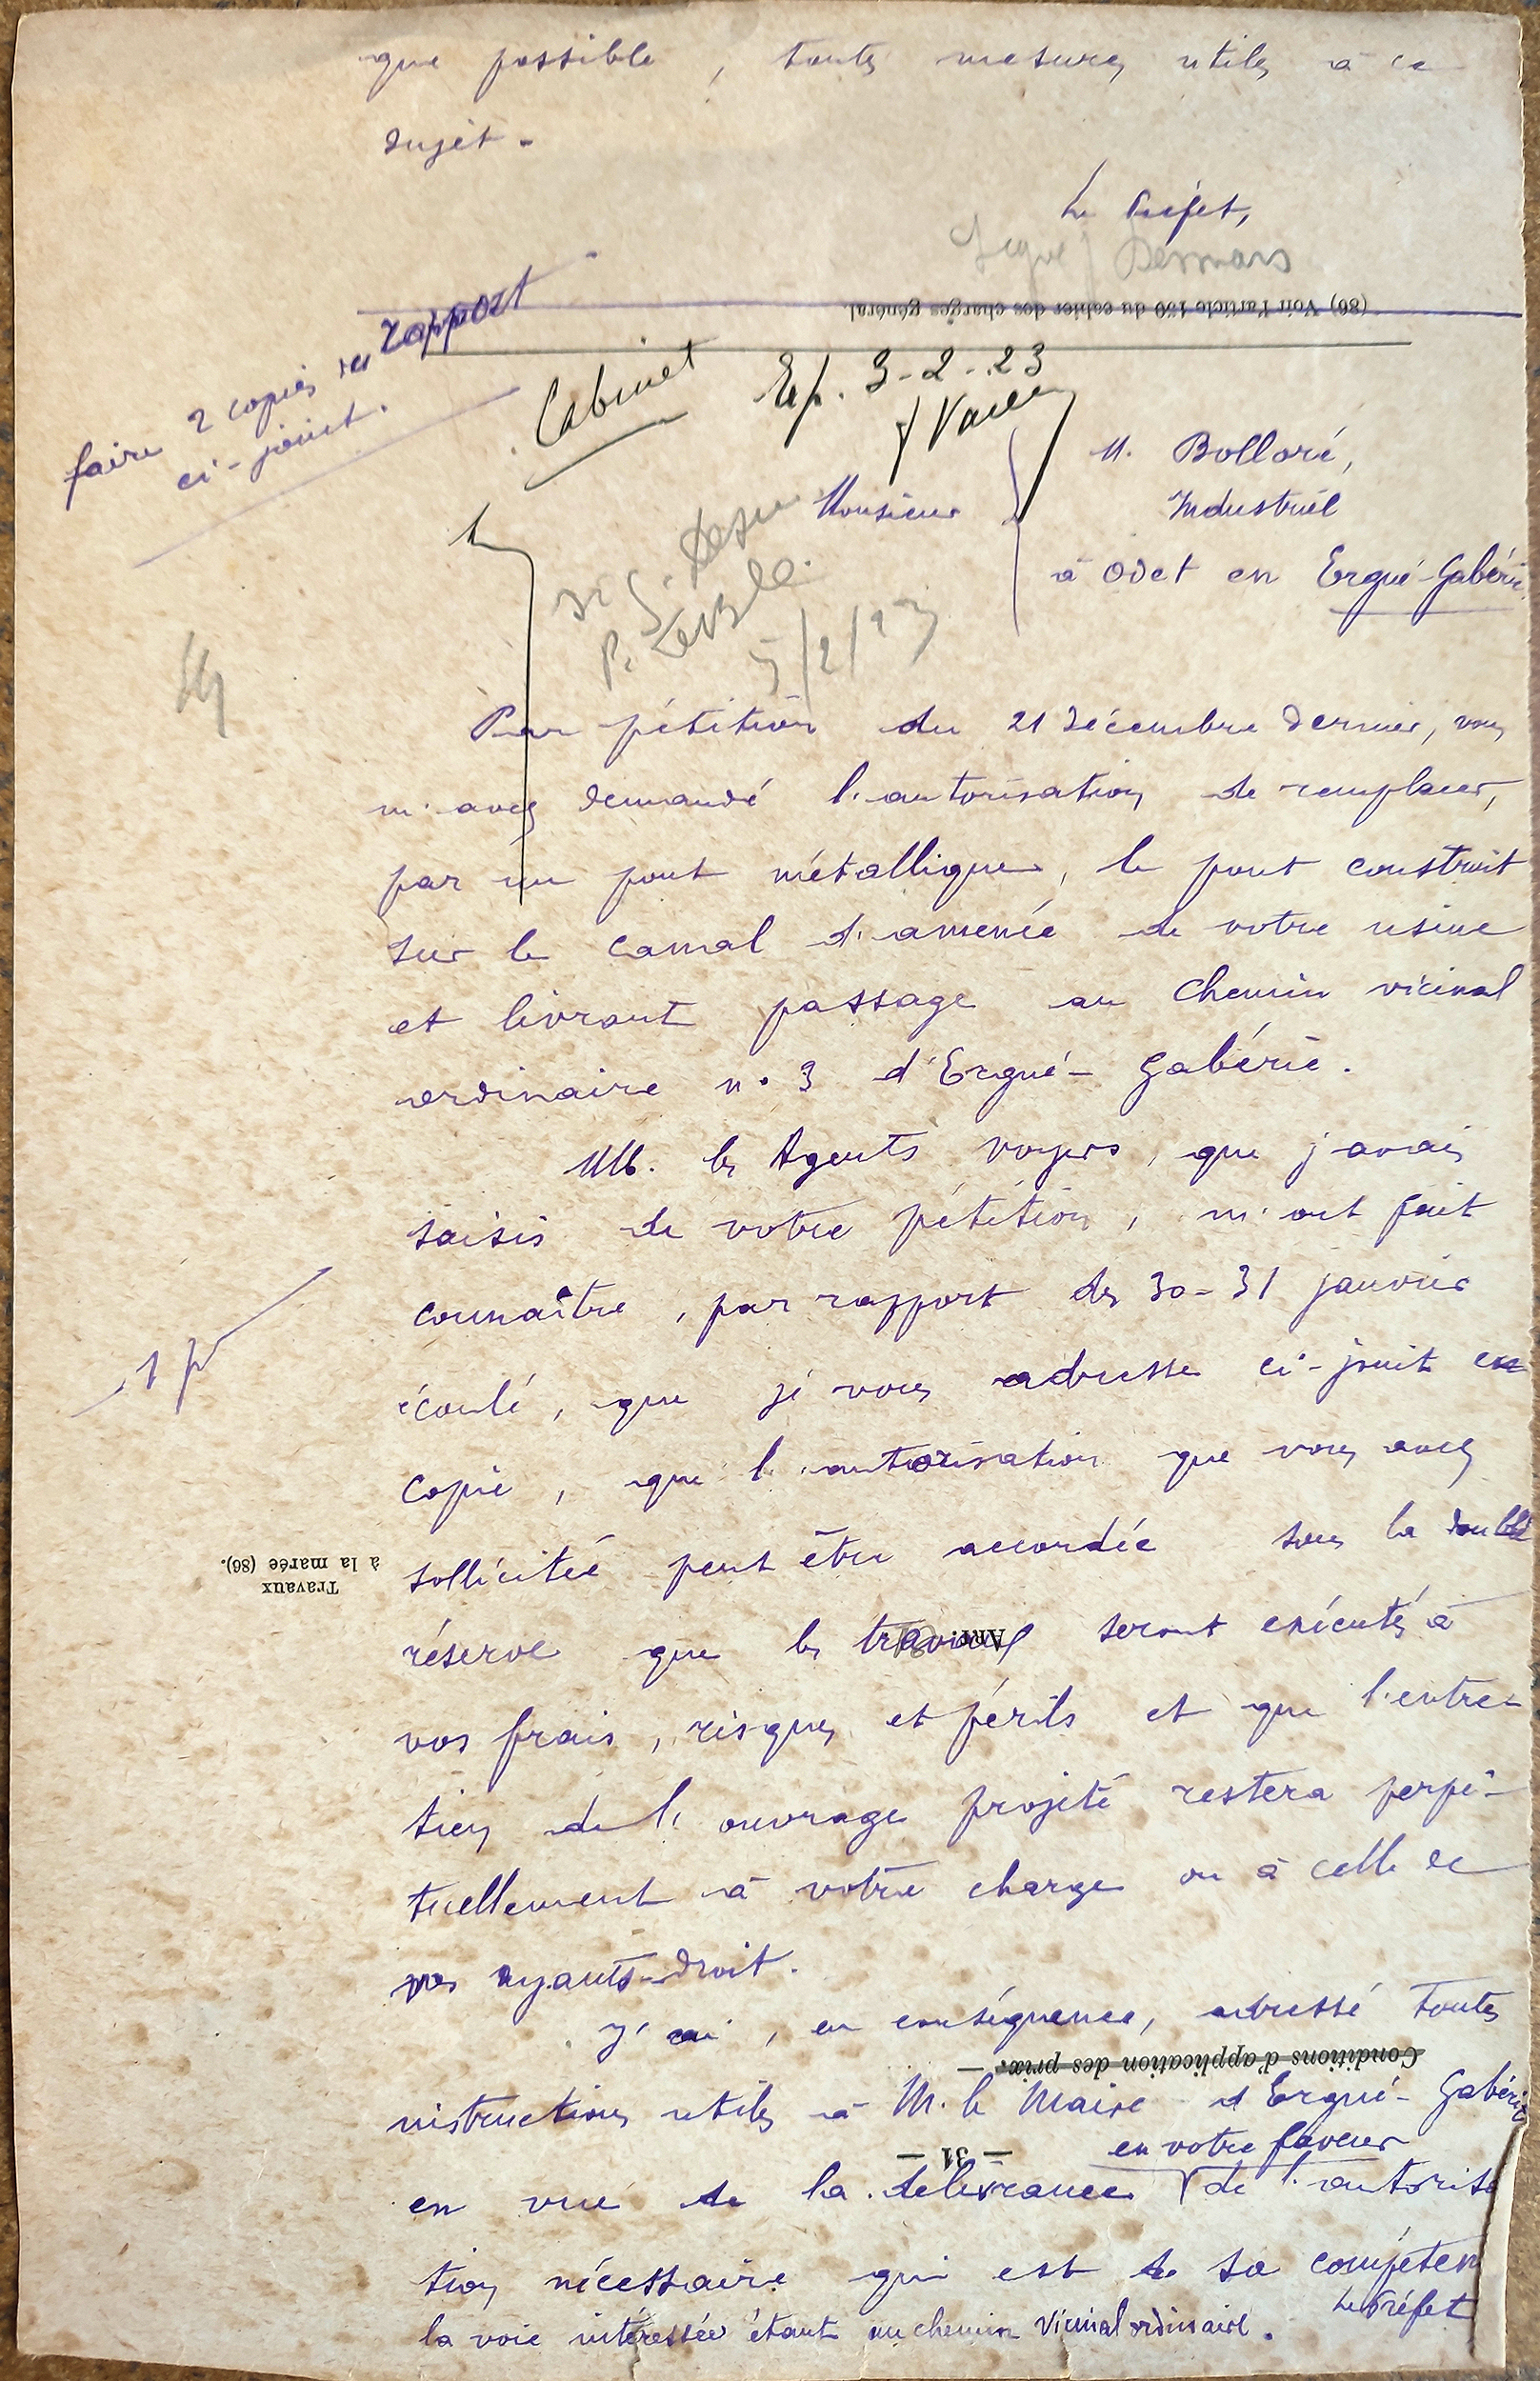 que possible, toutes mesures utiles à ce
sujet.
Le Préfet,
Signé
(86) Voir l'article 150 du cahier des charges général.
faire 2 copies du rapport
ci-joint.
Cabinet
Exp. 3-2-23
Monsieur
M. Bolloré,
Industriel
à Odet en Ergué-Gabéric
5/2/23
Par pétition du 21 décembre dernier, vous
m'avez demandé l'autorisation de remplacer,
par un pont métallique, le pont construit
sur le canal d'amenée de votre usine
et livrant passage au chemin vicinal
ordinaire n° 3 d'Ergué-Gabéric.
MM. les Agents voyers, que j'avais
saisis de votre pétition, m'ont fait
connaître, par rapport des 30-31 janvier
écoulé, que je vous adresse ci-joint en
copie, que l'autorisation que vous avez
sollicitée peut être accordée sous la double
Travaux
à la marée (86).
réserve que les travaux seront exécutés à
ART.
vos frais, risques et périls et que l'entre-
tien de l'ouvrage projeté restera perpé-
tuellement à votre charge ou à celle de
vos ayants-droit.
J'ai, en conséquence, adressé toutes
Conditions d'application des prix. —
instructions utiles à M. le Maire d'Ergué-Gabéric
— 31 —
en votre faveur
en vue de la délivrance de l'autorisa
tion nécessaire qui est de sa compéten
la voie intéressée étant un chemin vicinal ordinaire.
Le Préfet